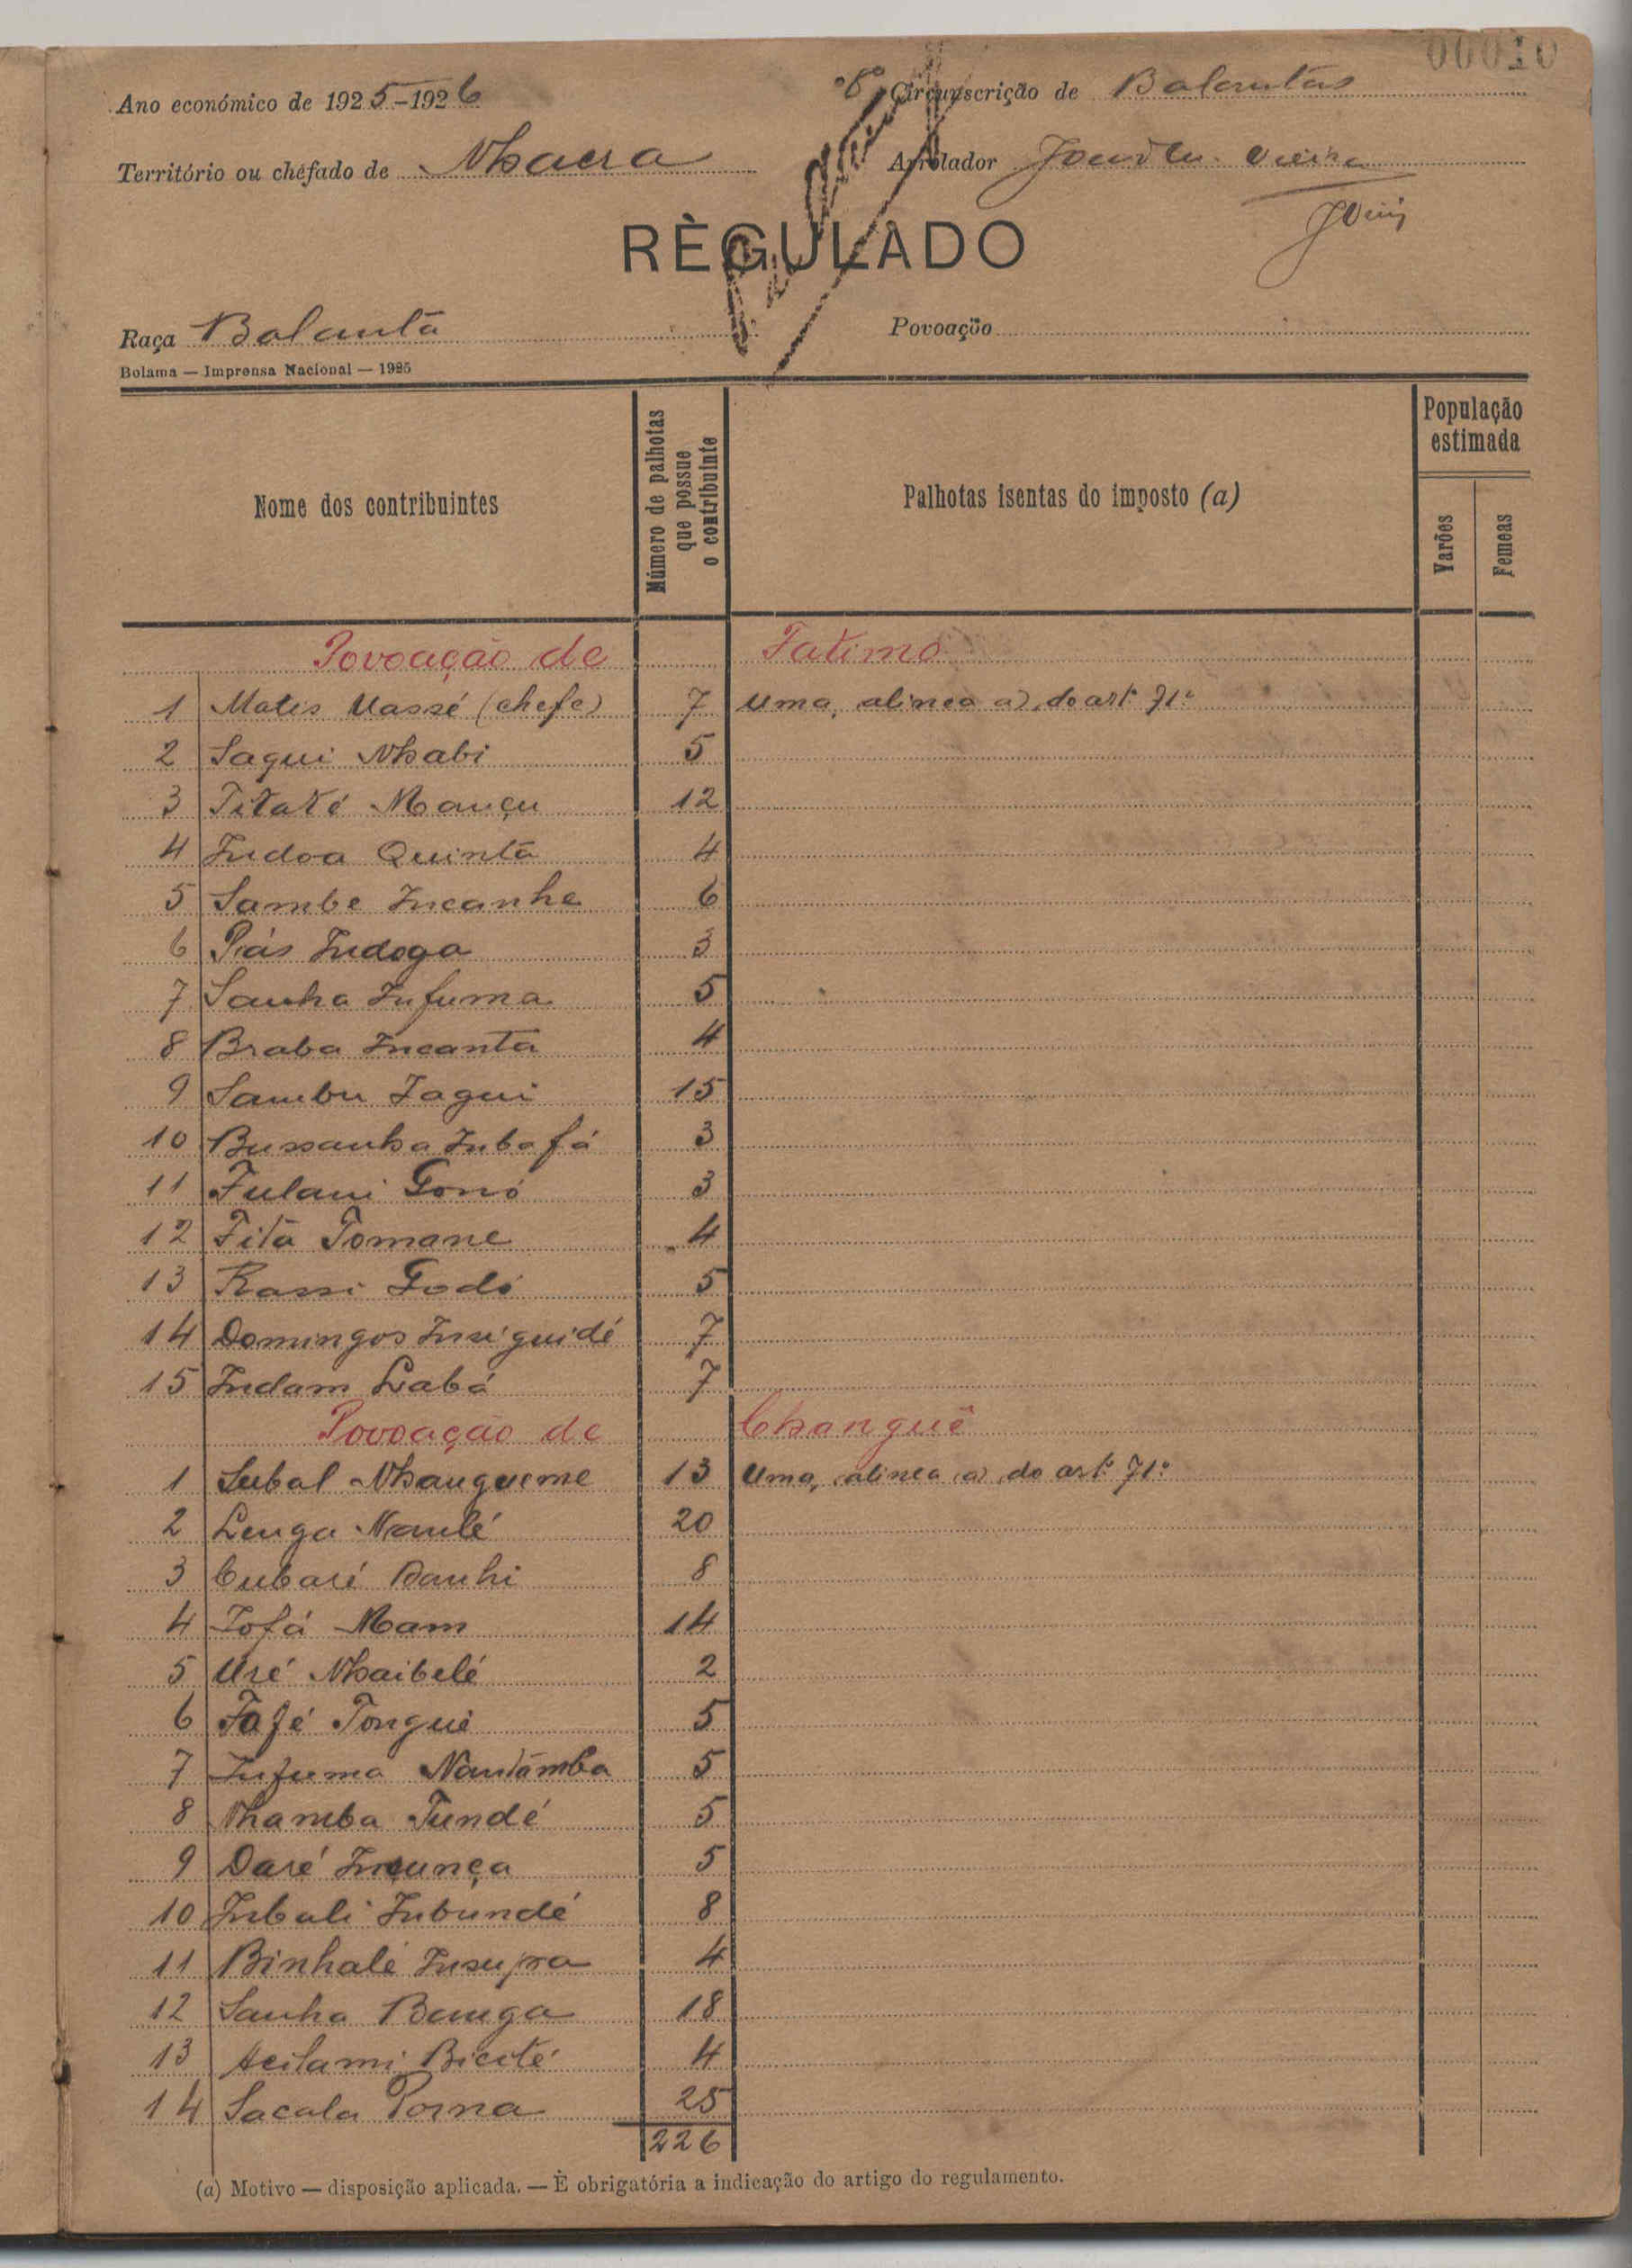 00010
Ano económico de 1925-1926
Circunscrição de Balantas
Território ou chefado de Nhacra
Arrolador
RÈGULADO
Raça Balanta
Povoação
Bolama — Imprensa Nacional — 1925
Nome dos contribuintes
Número de palhotas que possue o contribuinte
Palhotas isentas do imposto (a)
População estimada
Varões
Femeas
Povoação de Fatimo
1 Matis Uassé (chefe) 7 Uma, alinea a), do artº 71º
2 Sagui Nhabi 5
3 Titaté Mançu 12
4 Indoa Quintã 4
5 Sambe Incanhe 6
6 Piás Indoga 3
7 Sanha Infuma 5
8 Braba Incanta 4
9 Sambu Iagui 15
10 Bussanha Inbafá 3
11 Fulani Gonó 3
12 Fitã Tomane 4
13 Kassi Godó 5
14 Domingos Insiguidé 7
15 Indam Labá 7
Povoação de Changuê
1 Subal Nhangueme 13 Uma, alinea a) do artº 71º
2 Lenga Nanlé 20
3 Cubaré Danhi 8
4 Tofá Mam 14
5 Uré Nhaibelé 2
6 Fafé Tongué 5
7 Infuma Nantamba 5
8 Nhamba Tundé 5
9 Daré Incunça 5
10 Inbali Inbundé 8
11 Binhalé Insupra 4
12 Sanha Banga 18
13 Bicité 4
14 Sacala Porna 25
226
(a) Motivo — disposição aplicada. — È obrigatória a indicação do artigo do regulamento.